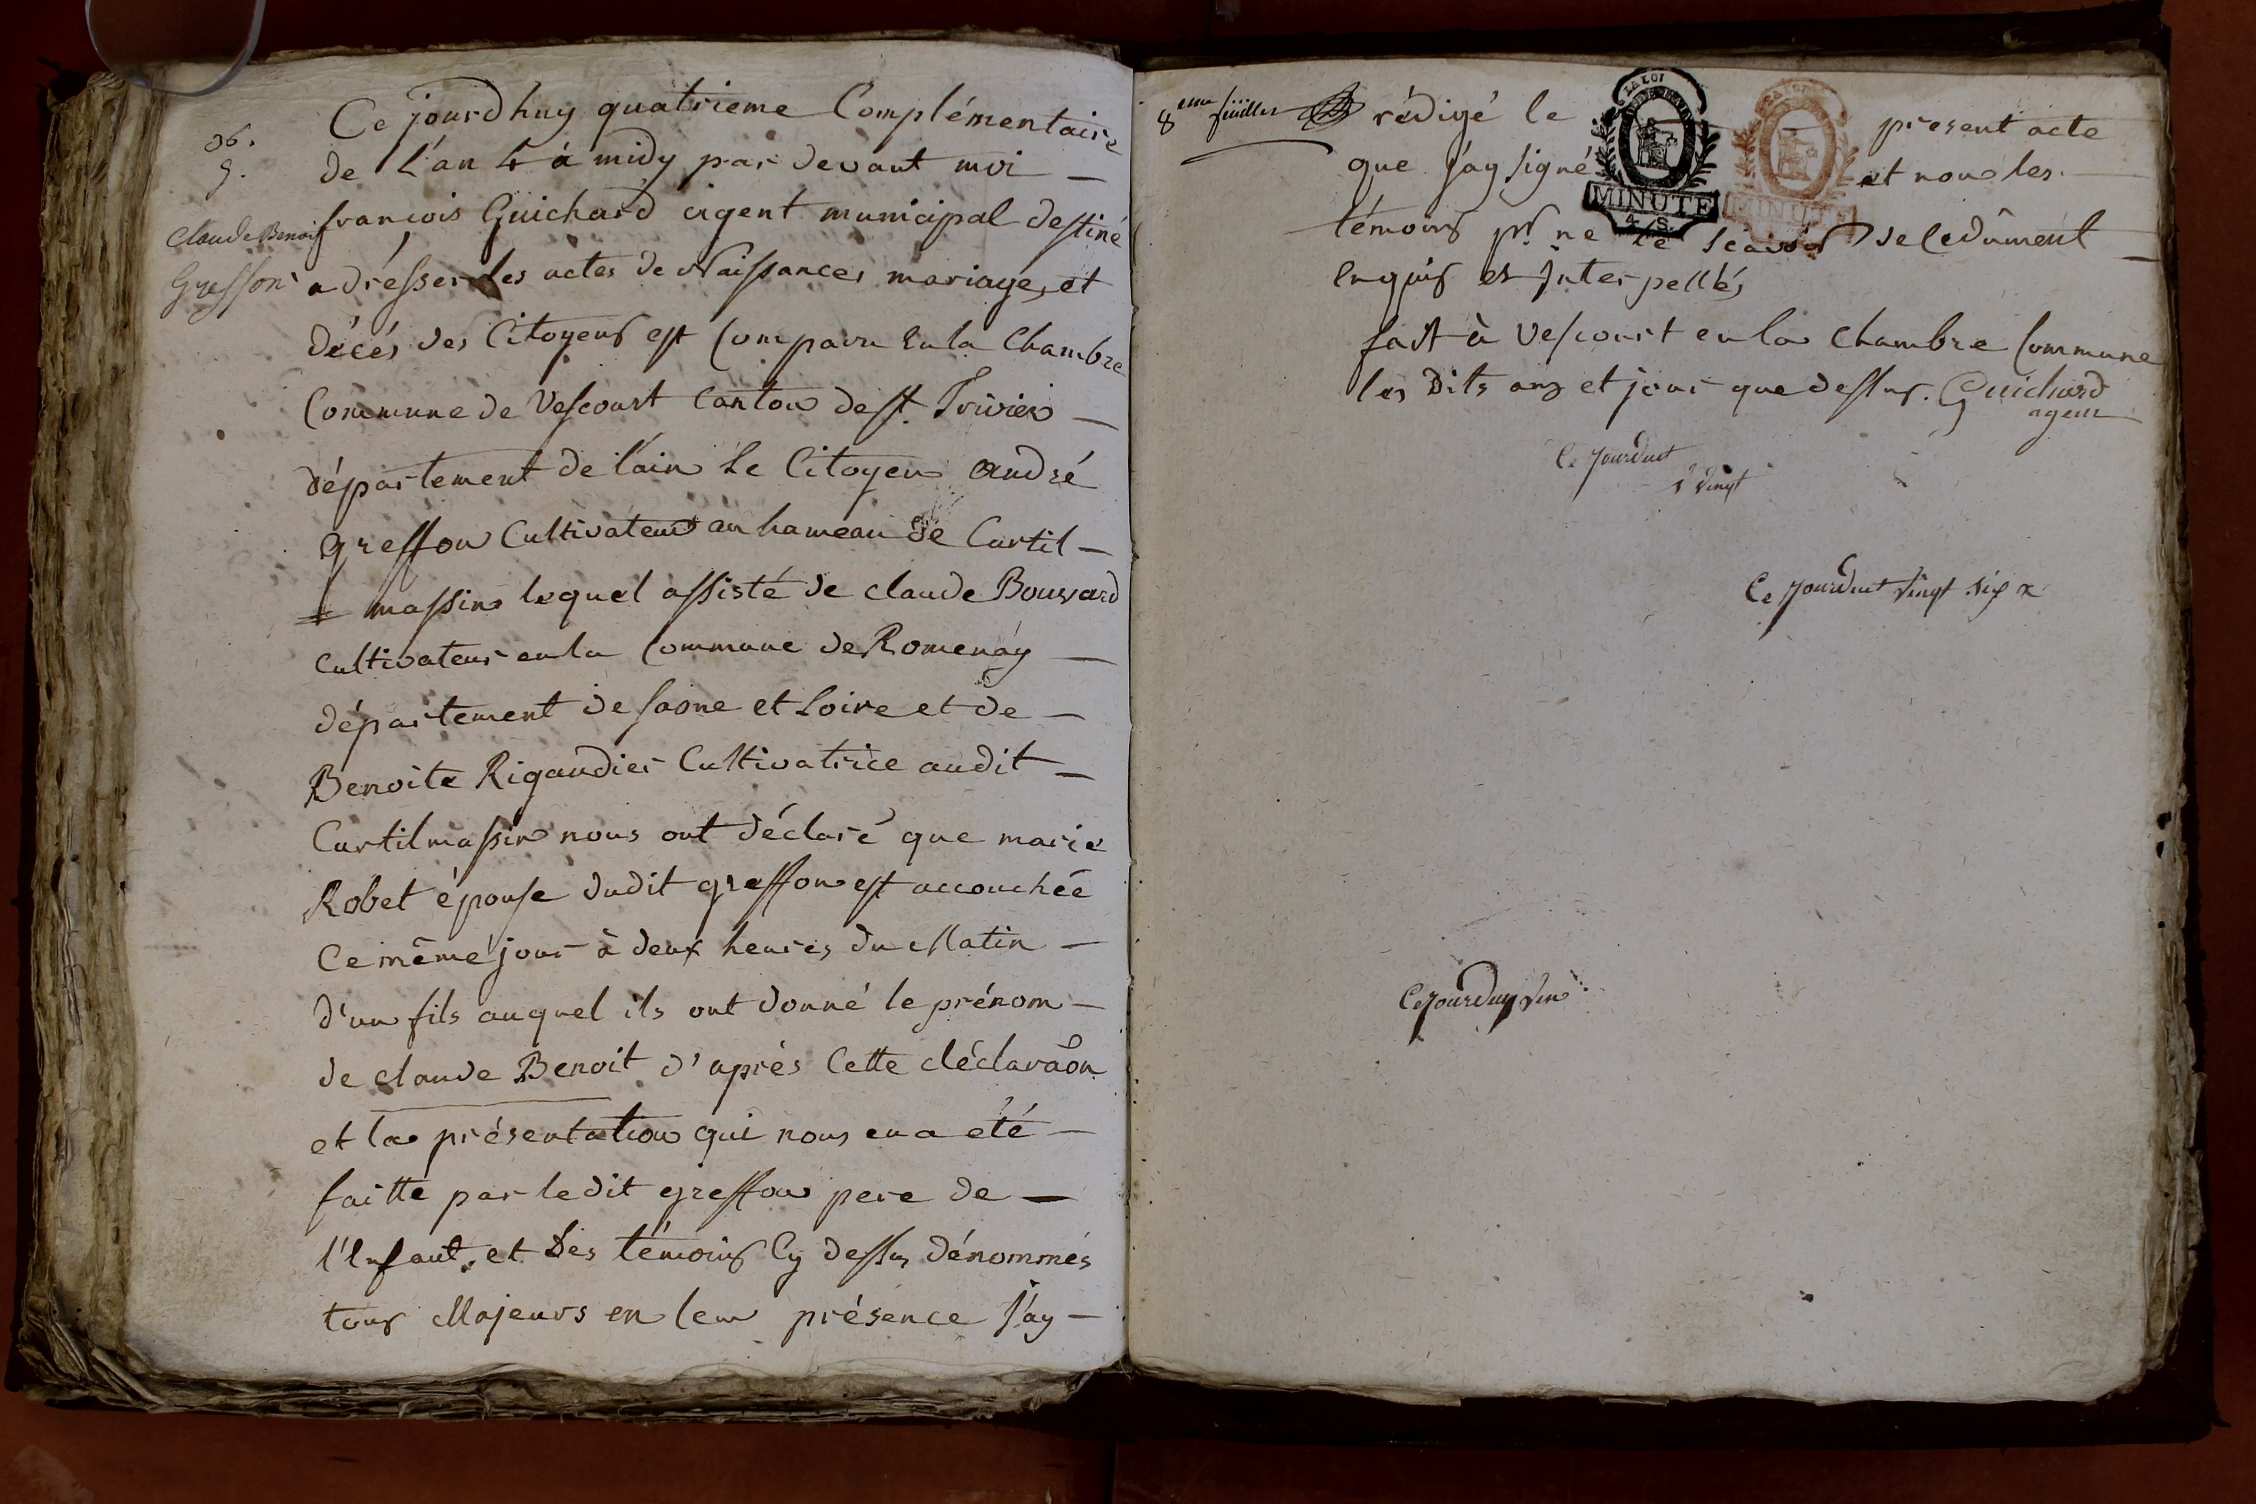 36.
9.
Claude Benoit
Greffon
Ce jourdhuy quatrieme Complémentaire
de L'an 4 à midy par devant moi
françois Guichard agent municipal destiné
a dresser les actes de Naissances mariages et
décés des Citoyens est Comparu en la Chambre
Commune de Vescourt Canton de st. Trivier
département de l'ain Le Citoyen andré
greffon Cultivateur au hameau de Curtil
massin lequel assisté de claude Bouvard
cultivateur en la Commune de Romenay
département de saone et Loire et de
Benoite Rigaudier Cultivatrice audit
Curtilmassin nous ont déclaré que marie
Robet épouse dudit greffon est accouchée
Ce même jour à deux heures du Matin
d'un fils auquel ils ont donné le prénom
de claude Benoit d'aprés Cette déclaraõn
et la présentation qui nous en a été
faitte par ledit greffon pere de
l'Enfant, et Des témoins Cy dessus dénommés
tous Majeurs en leur présence J'ay
8eme feuillet
rédigé le present acte
que J'ay signé et non les
témoins pr. ne le scavoir de Ce dûment
Enquis et Interpellés
fait à Vescourt en la Chambre Commune
les Dits an et jour que dessus. Guichard
agent
LA LOI
MINUTE
4. S.
MINUTE
Ce jourdui
vingt
Ce jourdui vingt six
Ce jourduy vin